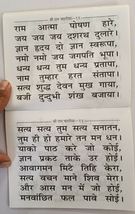 श्री राम चालीसा
राम आत्मा पोषण हारे,
जय जय जय दशरथ दुलारे।
ज्ञान हृदय दो ज्ञान स्वरूपा,
नमो नमो जय जगपति भूपा।
धन्य धन्य तुम धन्य प्रतापा,
नाम तुम्हार हरत संतापा।
सत्य शुद्ध देवन मुख गाया,
बजी दुन्दुभी शंख बजाया।
श्री राम चालीसा
सत्य सत्य तुम सत्य सनातन,
तुम ही हो हमारे तन मन धन।
याको पाठ करे जो कोई,
ज्ञान प्रकट ताके उर होई।
आवागमन मिटै तिहि केरा,
सत्य वचन माने शिव मेरा।
और आस मन में जो होई,
मनवांछित फल पावे सोई।